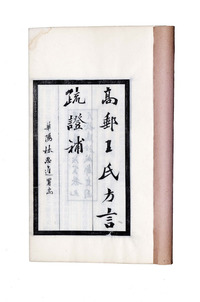 高郵王氏方言
疏證補
華陽林思進署耑